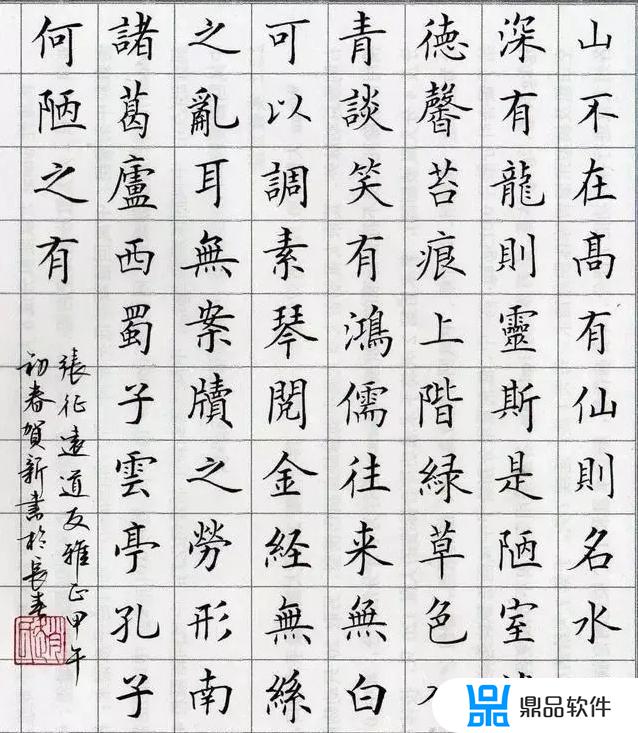 山不在髙有仙則名水
深有龍則靈斯是陋室
德馨苔痕上階緑草色
青談笑有鴻儒往来無白
可以調素琴閲金経無絲
之亂耳無案牘之勞形南
諸葛廬西蜀子雲亭孔子
何陋之有
張征遠道友雅正甲午
初春賀新書於長春
鼎品软件